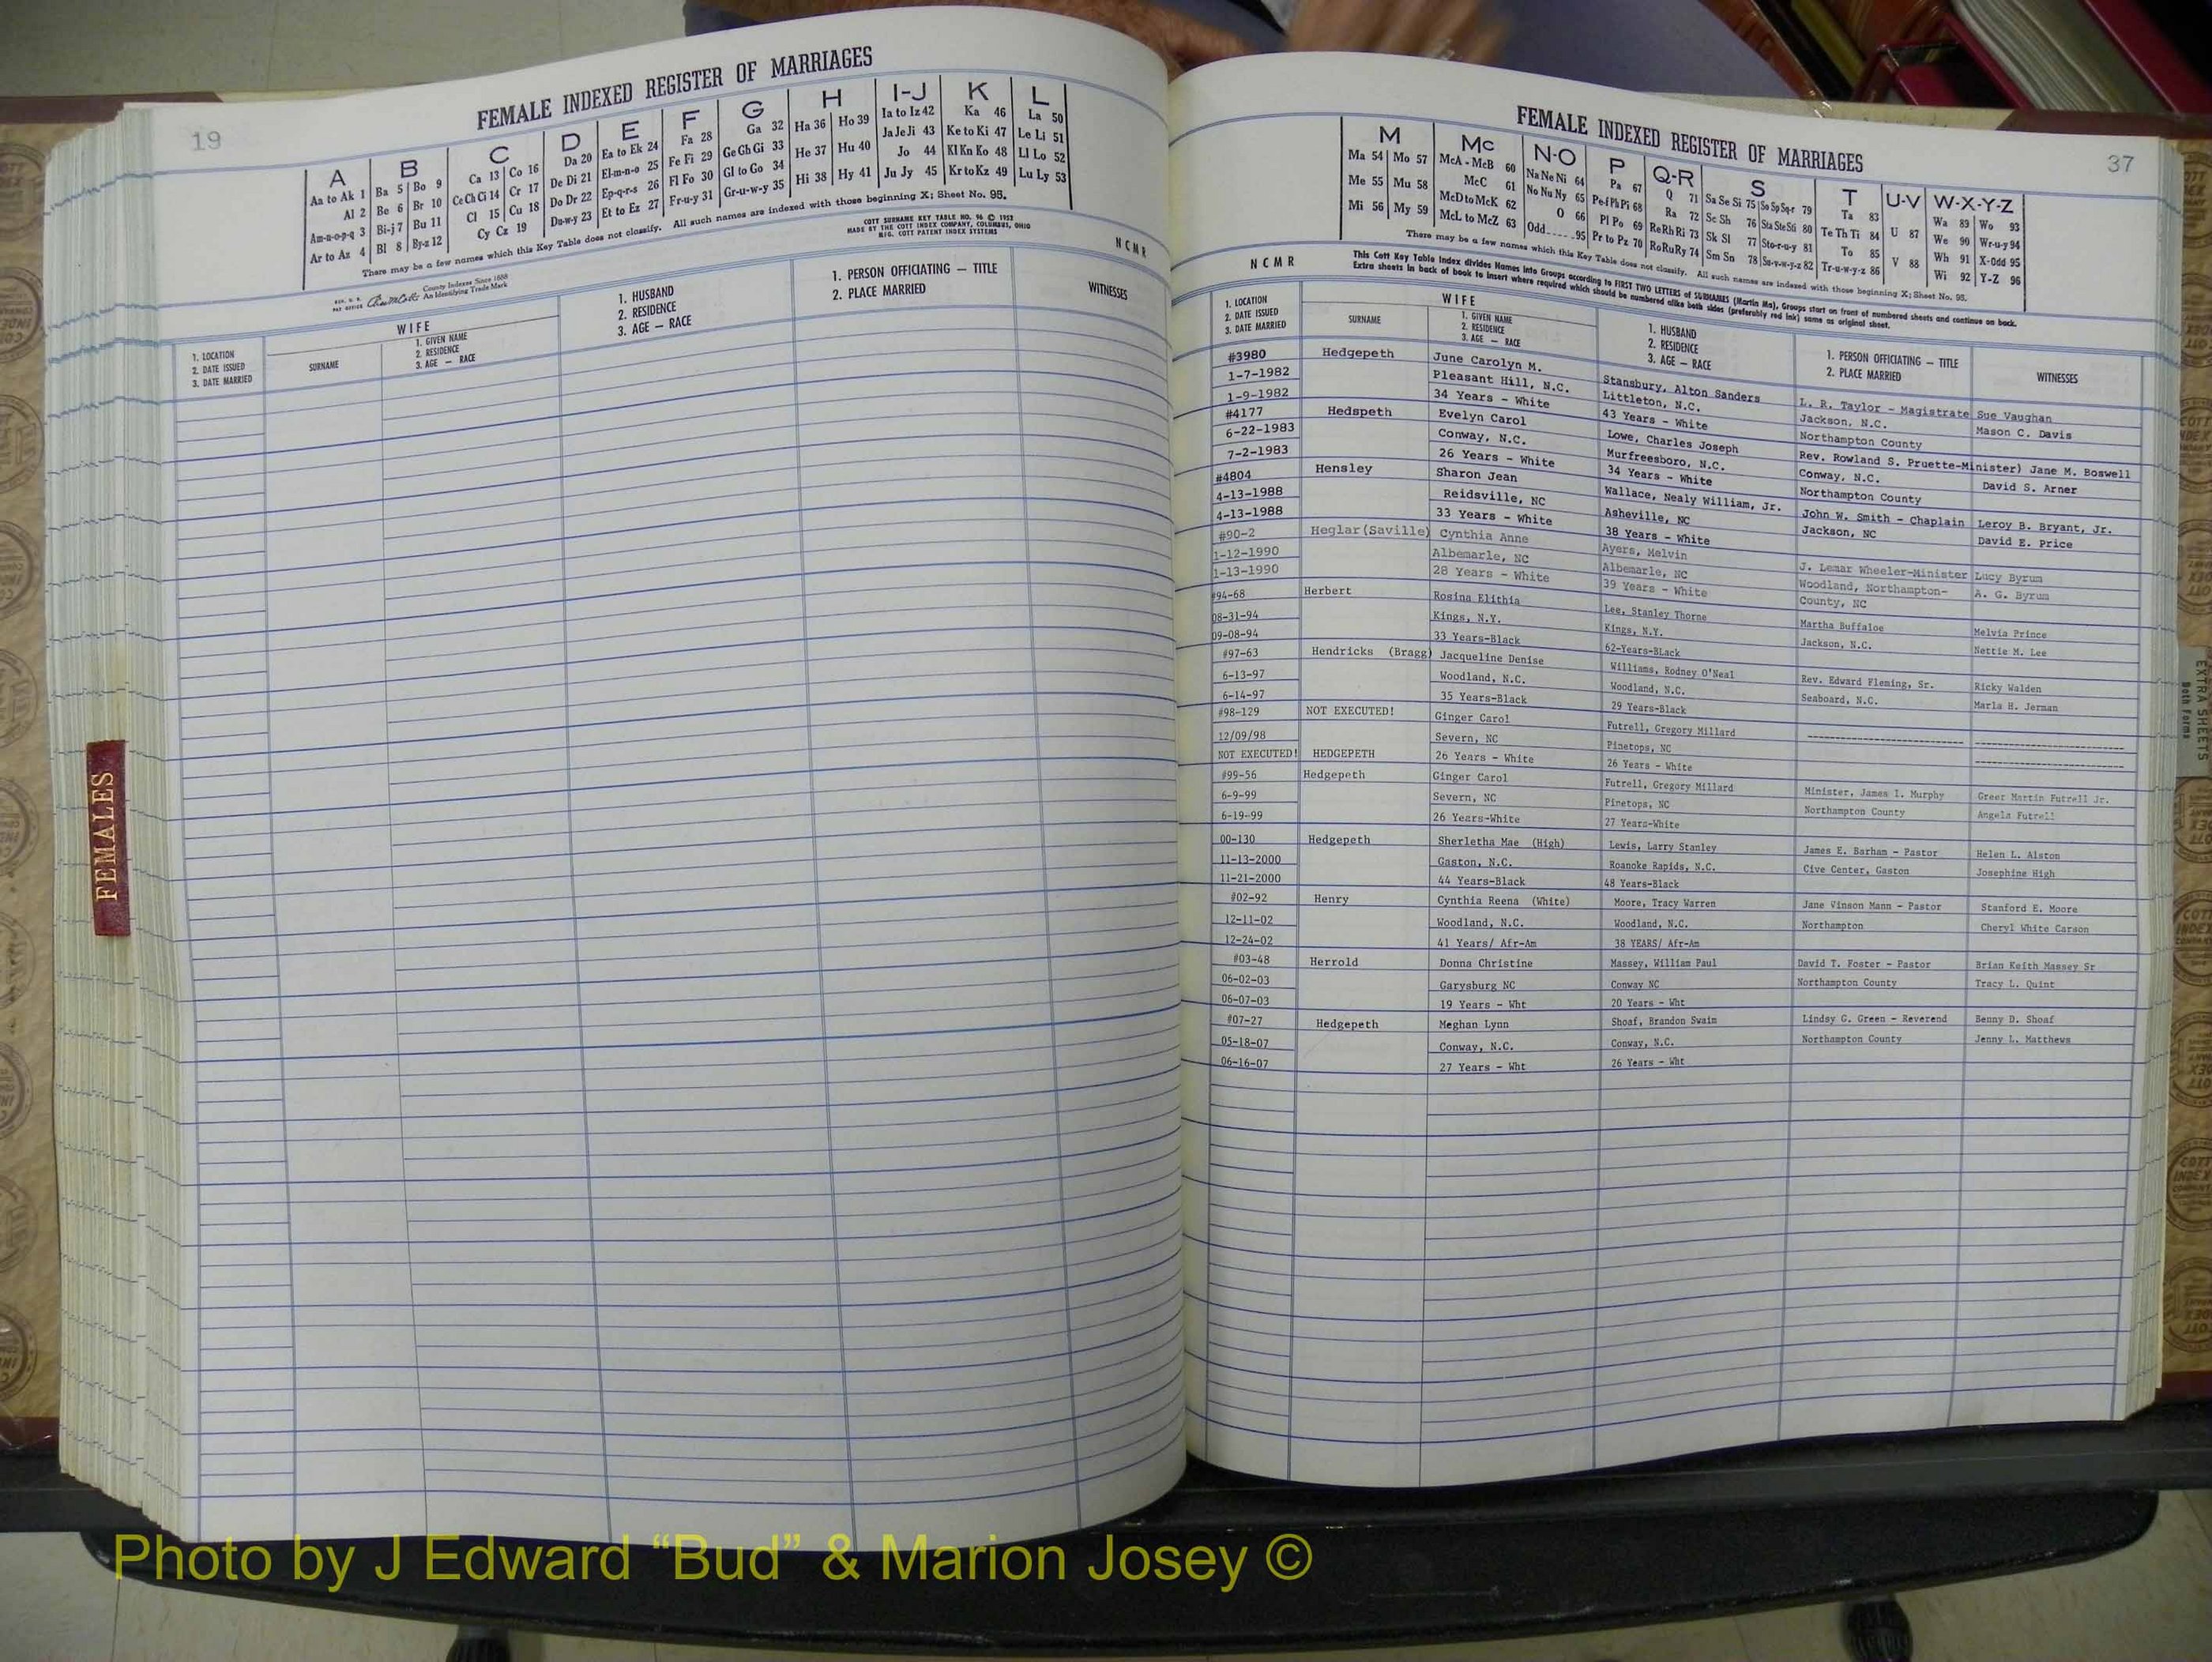 19
FEMALE INDEXED REGISTER OF MARRIAGES
A B C D E F G H I-J K L
Aa to Ak 1 Ba 5 Bo 9 Ca 13 Co 16 Da 20 Ea to Ek 24 Fa 28 Ga 32 Ha 36 Ho 39 Ia to Iz 42 Ka 46 La 50
Al 2 Be 6 Br 10 Ce Ch Ci 14 Cr 17 De Di 21 El-m-n-o 25 Fe Fi 29 Ge Gh Gi 33 He 37 Hu 40 Ja Je Ji 43 Ke to Ki 47 Le Li 51
Am-n-o-p-q 3 Bi-j 7 Bu 11 Cl 15 Cu 18 Do Dr 22 Ep-q-r-s 26 Fl Fo 30 Gl to Go 34 Hi 38 Hy 41 Jo 44 Kl Kn Ko 48 Ll Lo 52
Ar to Az 4 Bl 8 By-z 12 Cy Cz 19 Du-w-y 23 Et to Ez 27 Fr-u-y 31 Gr-u-w-y 35 Ju Jy 45 Kr to Kz 49 Lu Ly 53
There may be a few names which this Key Table does not classify. All such names are indexed with those beginning X; Sheet No. 95.
County Indexes Since 1888
An Identifying Trade Mark
COTT SURNAME KEY TABLE NO. 96 © 1953
MADE BY THE COTT INDEX COMPANY, COLUMBUS, OHIO
MFG. COTT PATENT INDEX SYSTEMS
NCMR
1. LOCATION
2. DATE ISSUED
3. DATE MARRIED
WIFE
SURNAME
1. GIVEN NAME
2. RESIDENCE
3. AGE — RACE
1. HUSBAND
2. RESIDENCE
3. AGE — RACE
1. PERSON OFFICIATING — TITLE
2. PLACE MARRIED
WITNESSES
FEMALES
37
FEMALE INDEXED REGISTER OF MARRIAGES
M Mc N-O P Q-R S T U-V W-X-Y-Z
Ma 54 Mo 57 McA - McB 60 Na Ne Ni 64 Pa 67 Q 71 Sa Se Si 75 So Sp Sq-r 79 Ta 83 U 87 Wa 89 Wo 93
Me 55 Mu 58 McC 61 No Nu Ny 65 Pe-f Ph Pi 68 Ra 72 Sc Sh 76 Sta Ste Sti 80 Te Th Ti 84 V 88 We 90 Wr-u-y 94
Mi 56 My 59 McD to McK 62 O 66 Pl Po 69 Re Rh Ri 73 Sk Sl 77 Sto-r-u-y 81 To 85 Wh 91 X-Odd 95
McL to McZ 63 Odd-----95 Pr to Pz 70 Ro Ru Ry 74 Sm Sn 78 Su-v-w-y-z 82 Tr-u-w-y-z 86 Wi 92 Y-Z 96
There may be a few names which this Key Table does not classify. All such names are indexed with those beginning X; Sheet No. 95.
NCMR
This Cott Key Table Index divides Names into Groups according to FIRST TWO LETTERS of SURNAMES (Martin Ma), Groups start on front of numbered sheets and continue on back.
Extra sheets in back of book to insert where required which should be numbered alike both sides (preferably red ink) same as original sheet.
1. LOCATION
2. DATE ISSUED
3. DATE MARRIED
WIFE
SURNAME
1. GIVEN NAME
2. RESIDENCE
3. AGE — RACE
1. HUSBAND
2. RESIDENCE
3. AGE — RACE
1. PERSON OFFICIATING — TITLE
2. PLACE MARRIED
WITNESSES
#3980 Hedgepeth June Carolyn M. Stansbury, Alton Sanders L. R. Taylor - Magistrate Sue Vaughan
1-7-1982 Pleasant Hill, N.C. Littleton, N.C. Jackson, N.C. Mason C. Davis
1-9-1982 34 Years - White 43 Years - White Northampton County
#4177 Hedspeth Evelyn Carol Lowe, Charles Joseph Rev. Rowland S. Pruette-Minister) Jane M. Boswell
6-22-1983 Conway, N.C. Murfreesboro, N.C. Conway, N.C. David S. Arner
7-2-1983 26 Years - White 34 Years - White Northampton County
#4804 Hensley Sharon Jean Wallace, Nealy William, Jr. John W. Smith - Chaplain Leroy B. Bryant, Jr.
4-13-1988 Reidsville, NC Asheville, NC Jackson, NC David E. Price
4-13-1988 33 Years - White 38 Years - White
#90-2 Heglar(Saville) Cynthia Anne Ayers, Melvin J. Lemar Wheeler-Minister Lucy Byrum
1-12-1990 Albemarle, NC Albemarle, NC Woodland, Northampton- A. G. Byrum
1-13-1990 28 Years - White 39 Years - White County, NC
#94-68 Herbert Rosina Elithia Lee, Stanley Thorne Martha Buffaloe Melvia Prince
08-31-94 Kings, N.Y. Kings, N.Y. Jackson, N.C. Nettie M. Lee
09-08-94 33 Years-Black 62-Years-BLack
#97-63 Hendricks (Bragg) Jacqueline Denise Williams, Rodney O'Neal Rev. Edward Fleming, Sr. Ricky Walden
6-13-97 Woodland, N.C. Woodland, N.C. Seaboard, N.C. Marla H. Jerman
6-14-97 35 Years-Black 29 Years-Black
#98-129 NOT EXECUTED! Ginger Carol Futrell, Gregory Millard
12/09/98 Severn, NC Pinetops, NC
NOT EXECUTED! HEDGEPETH 26 Years - White 26 Years - White
#99-56 Hedgepeth Ginger Carol Futrell, Gregory Millard Minister, James I. Murphy Greer Martin Futrell Jr.
6-9-99 Severn, NC Pinetops, NC Northampton County Angela Futrell
6-19-99 26 Years-White 27 Years-White
00-130 Hedgepeth Sherletha Mae (High) Lewis, Larry Stanley James E. Barham - Pastor Helen L. Alston
11-13-2000 Gaston, N.C. Roanoke Rapids, N.C. Cive Center, Gaston Josephine High
11-21-2000 44 Years-Black 48 Years-Black
#02-92 Henry Cynthia Reena (White) Moore, Tracy Warren Jane Vinson Mann - Pastor Stanford E. Moore
12-11-02 Woodland, N.C. Woodland, N.C. Northampton Cheryl White Carson
12-24-02 41 Years/ Afr-Am 38 YEARS/ Afr-Am
#03-48 Herrold Donna Christine Massey, William Paul David T. Foster - Pastor Brian Keith Massey Sr
06-02-03 Garysburg NC Conway NC Northampton County Tracy L. Quint
06-07-03 19 Years - Wht 20 Years - Wht
#07-27 Hedgepeth Meghan Lynn Shoaf, Brandon Swaim Lindsy G. Green - Reverend Benny D. Shoaf
05-18-07 Conway, N.C. Conway, N.C. Northampton County Jenny L. Matthews
06-16-07 27 Years - Wht 26 Years - Wht
EXTRA SHEETS
Both Forms
Photo by J Edward “Bud” & Marion Josey ©